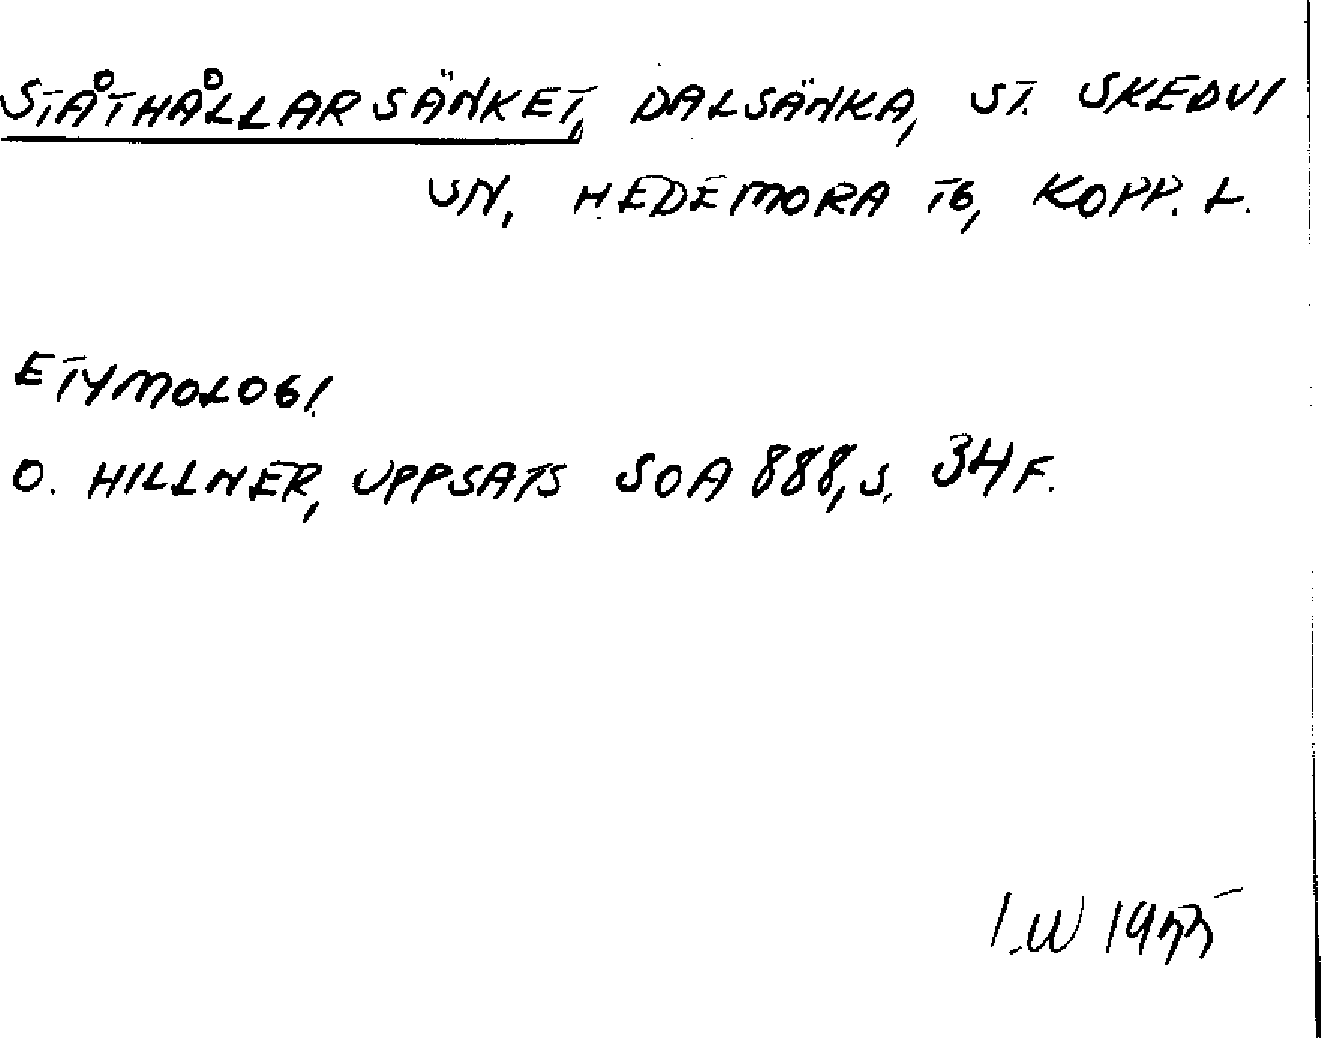 STÅTHÅLLARSÄNKET, DALSÄNKA, ST. SKEDVI
SN, HEDEMORA TG, KOPP. L.
ETYMOLOGI.
O. HILLNER, UPPSATS SOA 888, S. 34 F.
I.W 1955